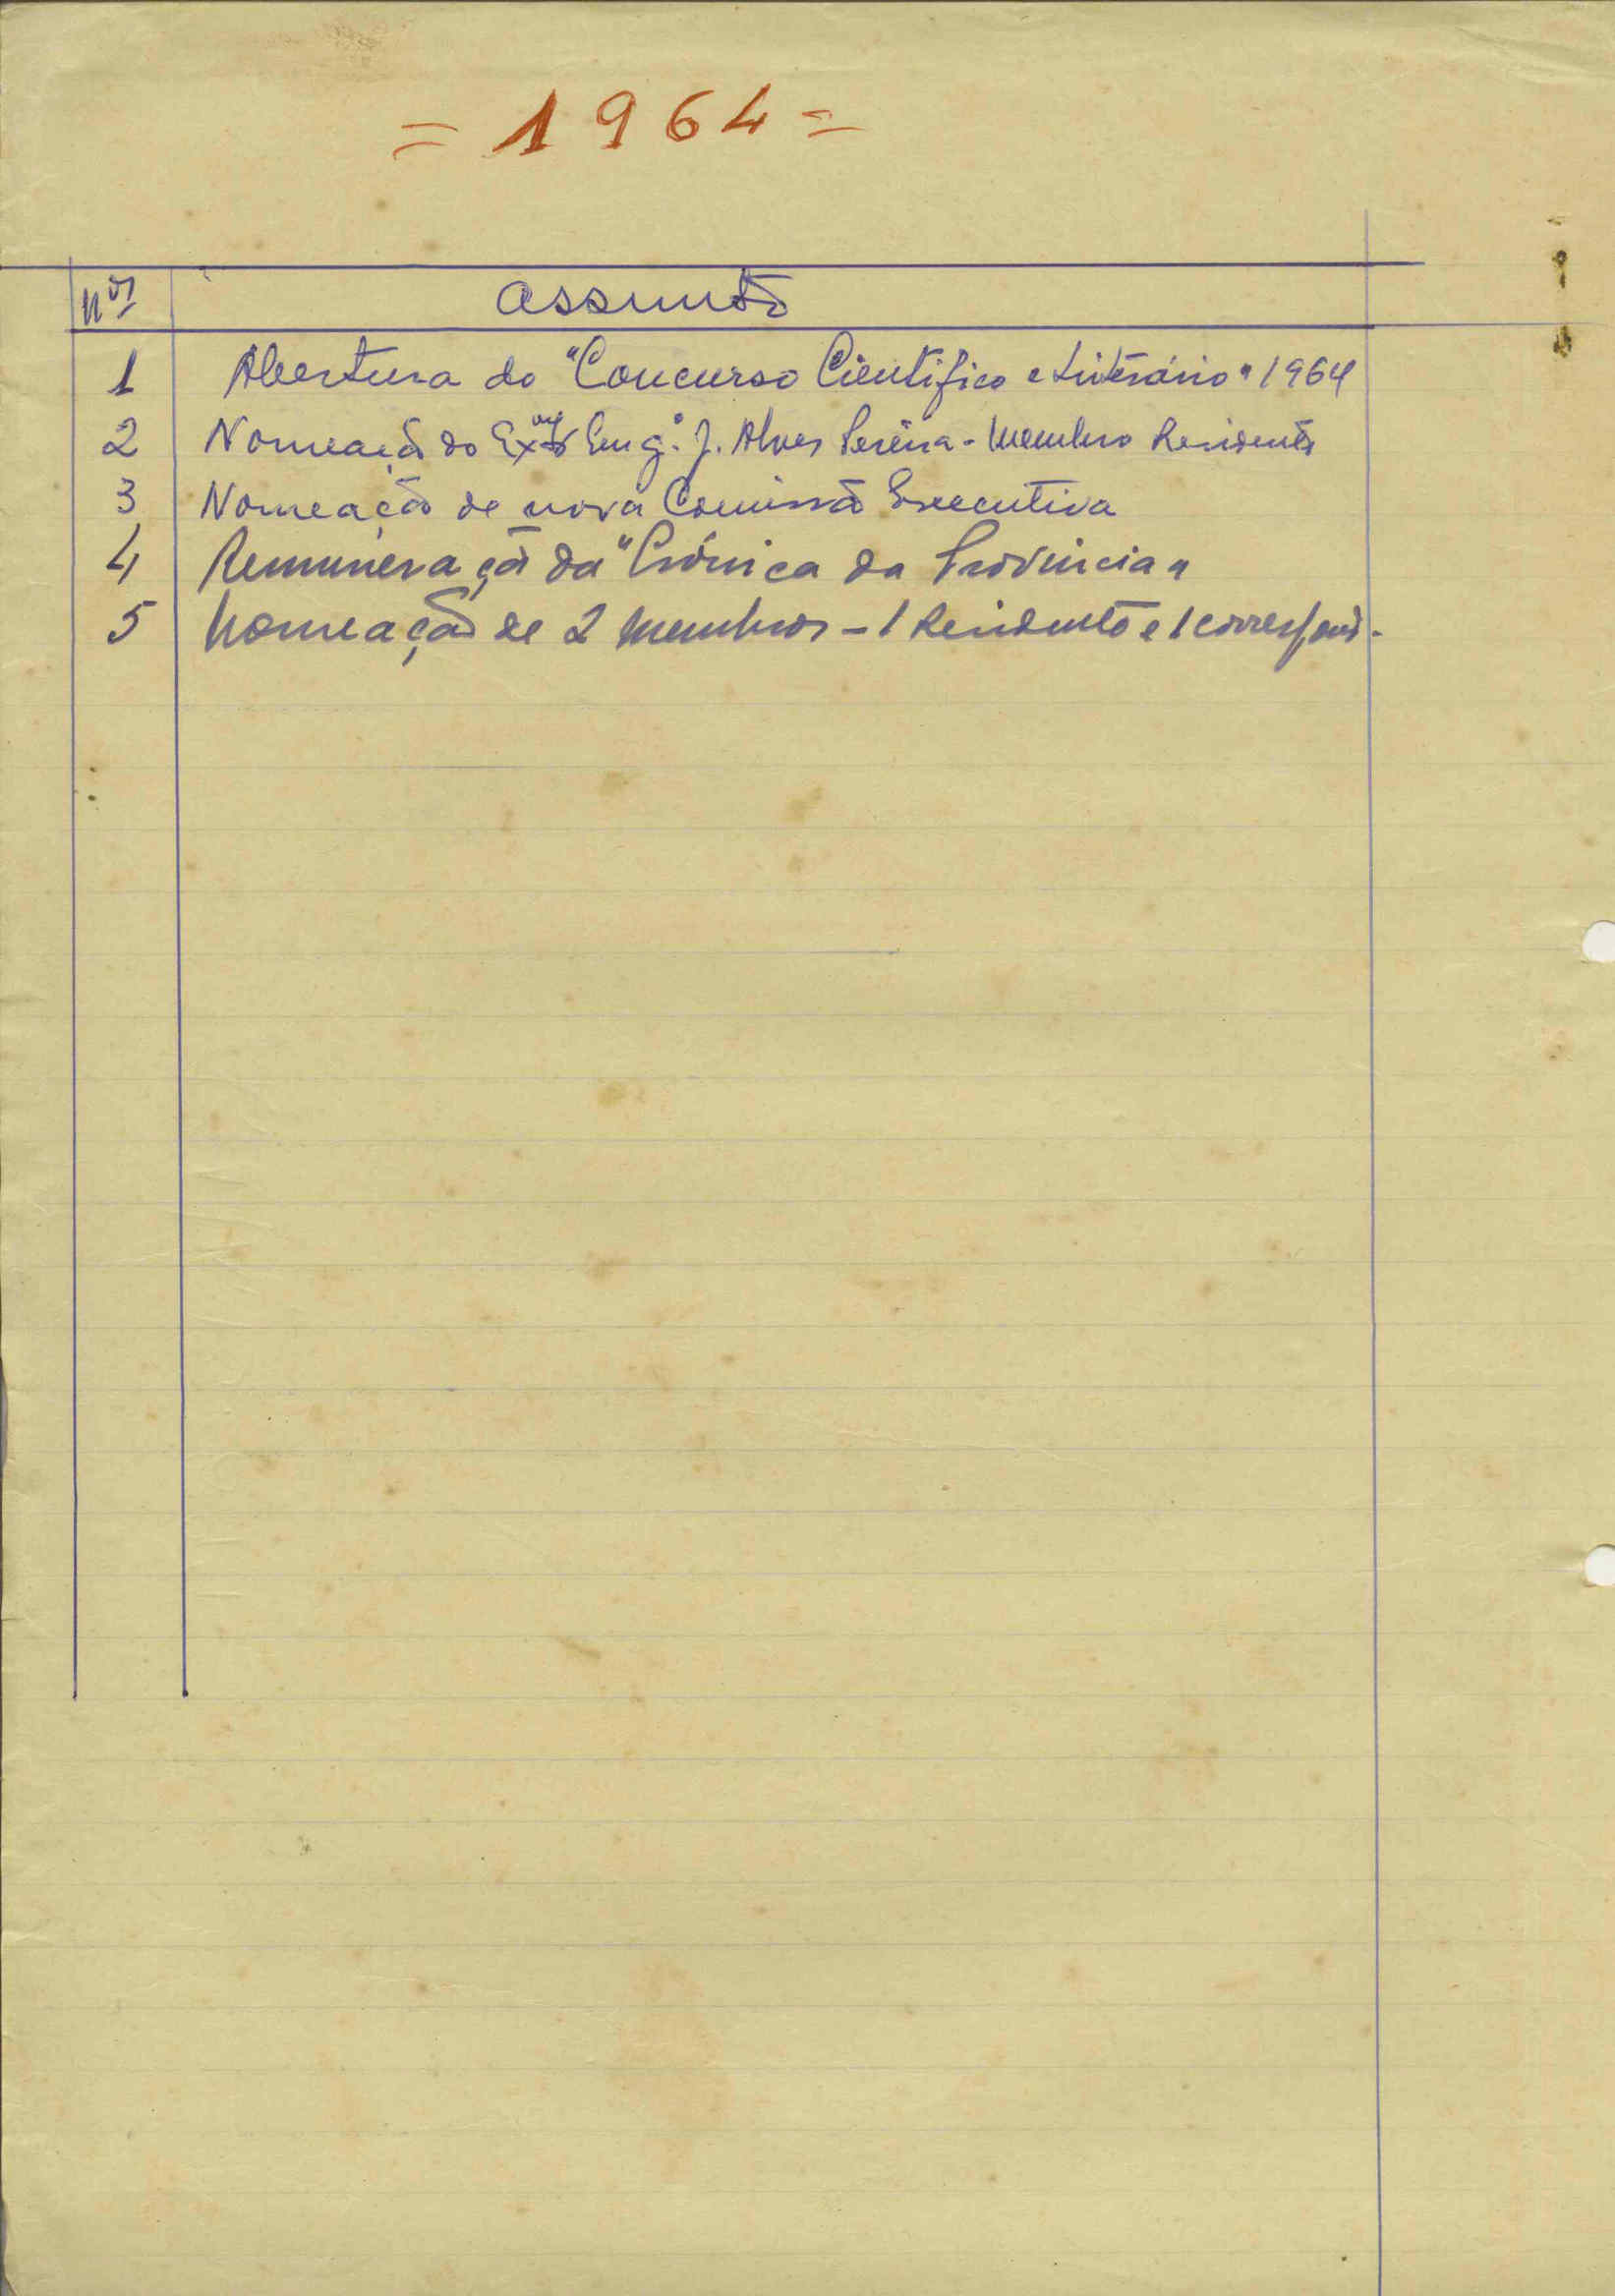 = 1964 =
Nos Assunto
1 Abertura do "Concurso Cientifico e Literário" 1964
2 Nomeação do Exmo Engº. J. Alves Pereira - Membro Residente
3 Nomeação de nova Comissão Executiva
4 Remuneração da "Crónica da Provincia"
5 Nomeação de 2 membros - 1 Residente e 1 correspond.